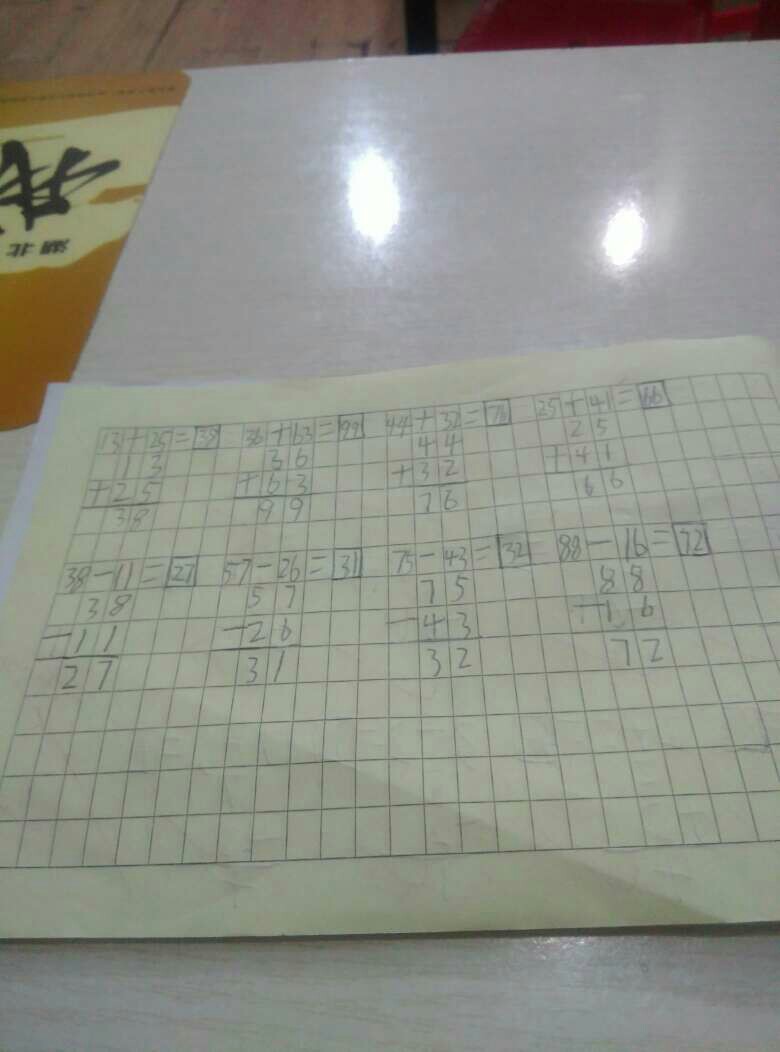 湖北
13+25=38 36+63=99 44+32=76 25+41=66
13 36 44 25
+25 +63 +32 +41
38 99 76 66
38-11=27 57-26=31 75-43=32 88-16=72
38 57 75 88
-11 -26 -43 -16
27 31 32 72